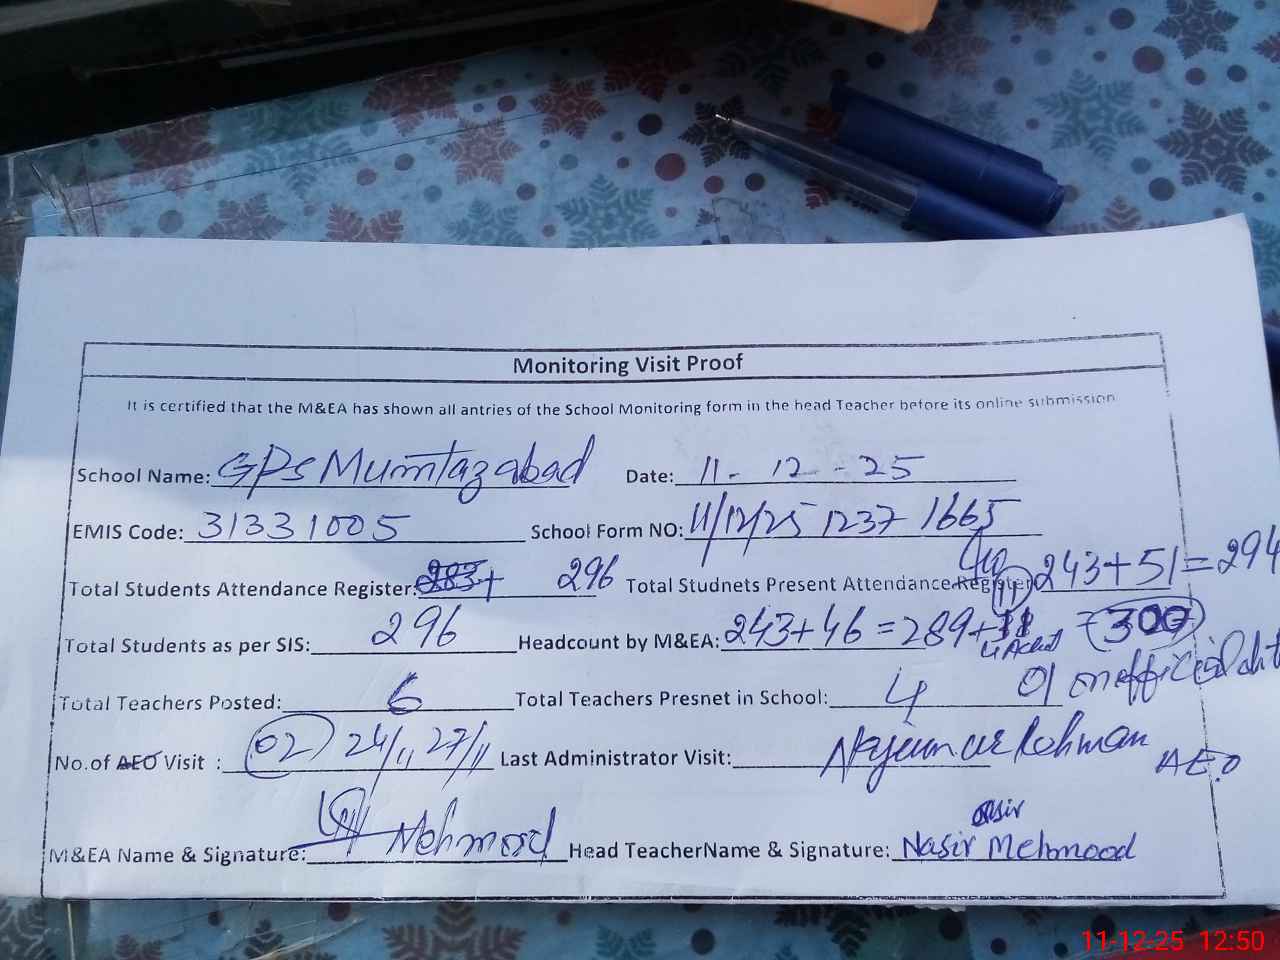 Monitoring Visit Proof
It is certified that the M&EA has shown all antries of the School Monitoring form in the head Teacher before its online submission
School Name: GPS Mumtazabad Date: 11-12-25
EMIS Code: 31331005 School Form NO: 11/12/25 1237 1665
Total Students Attendance Register: 283+ 296 Total Studnets Present Attendance Register 11 243+51=294
Total Students as per SIS: 296 Headcount by M&EA: 243+46=289+11 =300
Total Teachers Posted: 6 Total Teachers Presnet in School: 4 01 on official dut
No.of AEO Visit : 02 24/11, 27/11 Last Administrator Visit: Najum ur Rehman
AEO
M&EA Name & Signature: Mehmood Head TeacherName & Signature: Nasir Mehmood
11-12-25 12:50